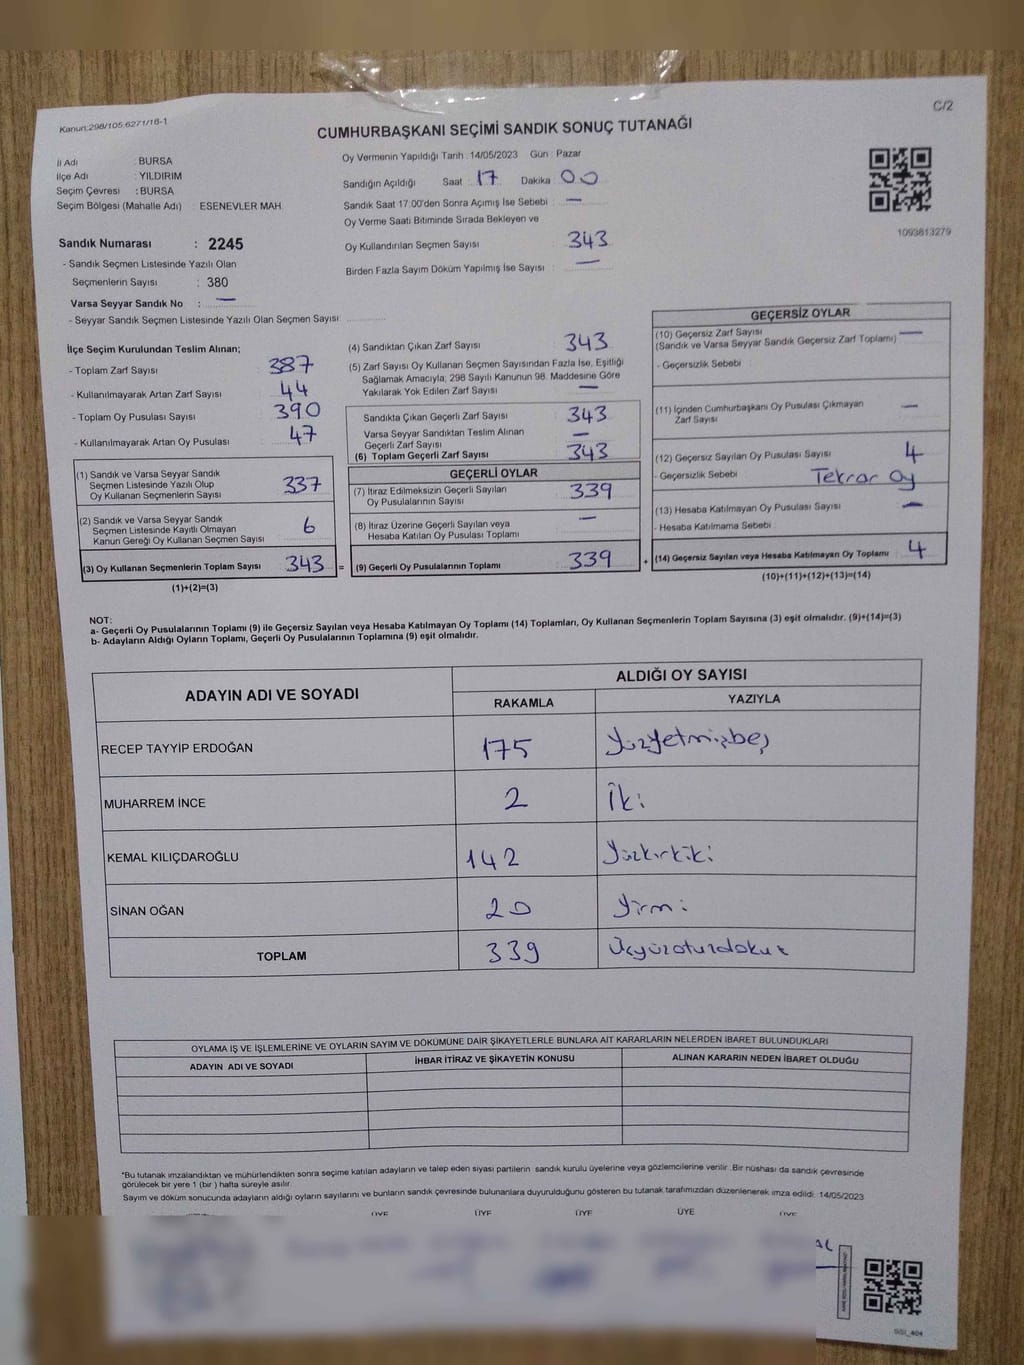 Kanun:298/105,6271/16-1
C/2
CUMHURBAŞKANI SEÇİMİ SANDIK SONUÇ TUTANAĞI
İl Adı : BURSA
İlçe Adı : YILDIRIM
Seçim Çevresi : BURSA
Seçim Bölgesi (Mahalle Adı) : ESENEVLER MAH.
Oy Vermenin Yapıldığı Tarih : 14/05/2023 Gün : Pazar
Sandığın Açıldığı Saat : 17 Dakika : 00
Sandık Saat 17:00'den Sonra Açımış İse Sebebi : —
Oy Verme Saati Bitiminde Sırada Bekleyen ve
Oy Kullandırılan Seçmen Sayısı : 343
Birden Fazla Sayım Döküm Yapılmış İse Sayısı : —
1093813279
Sandık Numarası : 2245
- Sandık Seçmen Listesinde Yazılı Olan
Seçmenlerin Sayısı : 380
Varsa Seyyar Sandık No : —
- Seyyar Sandık Seçmen Listesinde Yazılı Olan Seçmen Sayısı:
İlçe Seçim Kurulundan Teslim Alınan;
- Toplam Zarf Sayısı : 387
- Kullanılmayarak Artan Zarf Sayısı : 44
- Toplam Oy Pusulası Sayısı : 390
- Kullanılmayarak Artan Oy Pusulası : 47
(1) Sandık ve Varsa Seyyar Sandık
Seçmen Listesinde Yazılı Olup
Oy Kullanan Seçmenlerin Sayısı : 337
(2) Sandık ve Varsa Seyyar Sandık
Seçmen Listesinde Kayıtlı Olmayan
Kanun Gereği Oy Kullanan Seçmen Sayısı : 6
(3) Oy Kullanan Seçmenlerin Toplam Sayısı : 343 =
(1)+(2)=(3)
(4) Sandıktan Çıkan Zarf Sayısı : 343
(5) Zarf Sayısı Oy Kullanan Seçmen Sayısından Fazla İse, Eşitliği
Sağlamak Amacıyla; 298 Sayılı Kanunun 98. Maddesine Göre
Yakılarak Yok Edilen Zarf Sayısı : —
Sandıkta Çıkan Geçerli Zarf Sayısı : 343
Varsa Seyyar Sandıktan Teslim Alınan
Geçerli Zarf Sayısı : —
(6) Toplam Geçerli Zarf Sayısı : 343
GEÇERLİ OYLAR
(7) İtiraz Edilmeksizin Geçerli Sayılan
Oy Pusulalarının Sayısı : 339
(8) İtiraz Üzerine Geçerli Sayılan veya
Hesaba Katılan Oy Pusulası Toplamı : —
(9) Geçerli Oy Pusulalarının Toplamı : 339 +
GEÇERSİZ OYLAR
(10) Geçersiz Zarf Sayısı
(Sandık ve Varsa Seyyar Sandık Geçersiz Zarf Toplamı) : —
- Geçersizlik Sebebi :
(11) İçinden Cumhurbaşkanı Oy Pusulası Çıkmayan
Zarf Sayısı : —
(12) Geçersiz Sayılan Oy Pusulası Sayısı : 4
- Geçersizlik Sebebi : Tekrar Oy
(13) Hesaba Katılmayan Oy Pusulası Sayısı : —
- Hesaba Katılmama Sebebi :
(14) Geçersiz Sayılan veya Hesaba Katılmayan Oy Toplamı : 4
(10)+(11)+(12)+(13)=(14)
NOT:
a- Geçerli Oy Pusulalarının Toplamı (9) ile Geçersiz Sayılan veya Hesaba Katılmayan Oy Toplamı (14) Toplamları, Oy Kullanan Seçmenlerin Toplam Sayısına (3) eşit olmalıdır. (9)+(14)=(3)
b- Adayların Aldığı Oyların Toplamı, Geçerli Oy Pusulalarının Toplamına (9) eşit olmalıdır.
ADAYIN ADI VE SOYADI ALDIĞI OY SAYISI
RAKAMLA YAZIYLA
RECEP TAYYİP ERDOĞAN 175 Yüzyetmişbeş
MUHARREM İNCE 2 İki
KEMAL KILIÇDAROĞLU 142 Yüzkırkiki
SİNAN OĞAN 20 Yirmi
TOPLAM 339 Üçyüzotuzdokuz
OYLAMA İŞ VE İŞLEMLERİNE VE OYLARIN SAYIM VE DÖKÜMÜNE DAİR ŞİKAYETLERLE BUNLARA AİT KARARLARIN NELERDEN İBARET BULUNDUKLARI
ADAYIN ADI VE SOYADI İHBAR İTİRAZ VE ŞİKAYETİN KONUSU ALINAN KARARIN NEDEN İBARET OLDUĞU
*Bu tutanak imzalandıktan ve mühürlendikten sonra seçime katılan adayların ve talep eden siyasi partilerin sandık kurulu üyelerine veya gözlemcilerine verilir. Bir nüshası da sandık çevresinde
görülecek bir yere 1 (bir ) hafta süreyle asılır.
Sayım ve döküm sonucunda adayların aldığı oyların sayılarını ve bunların sandık çevresinde bulunanlara duyurulduğunu gösteren bu tutanak tarafımızdan düzenlenerek imza edildi. 14/05/2023
ÜYE ÜYE ÜYE ÜYE ÜYE